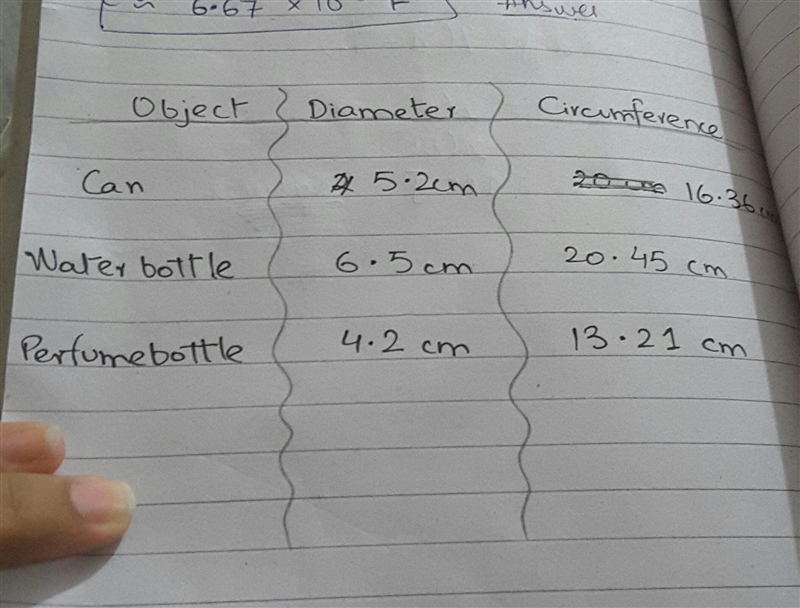 ≈ 6.67 × 10 F Answer
Object Diameter Circumference
Can 5.2cm 16.36cm
Water bottle 6.5 cm 20.45 cm
Perfumebottle 4.2 cm 13.21 cm